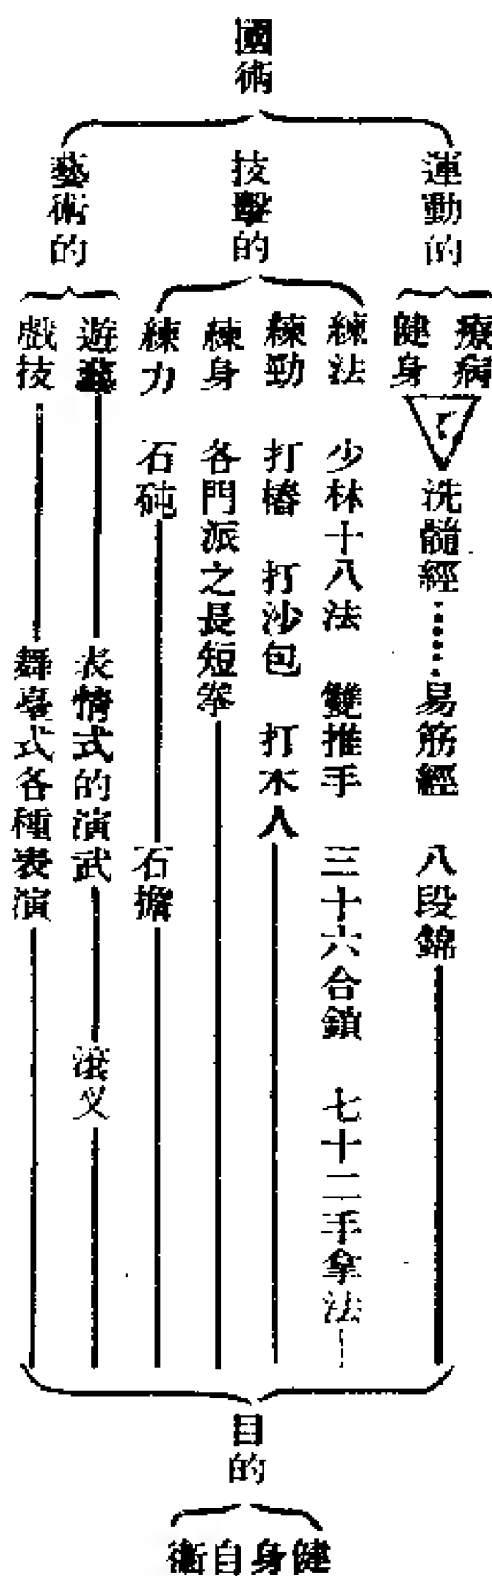 國術
運動的
技擊的
藝術的
療病
健身
洗髓經
易筋經
八段錦
練法
少林十八法
雙推手
三十六合鎖
七十二手拿法
練勁
打樁
打沙包
打木人
練身
各門派之長短拳
練力
石砘
石擔
遊藝
表情式的演武
滾叉
戲技
舞臺式各種表演
目的
健身自衛